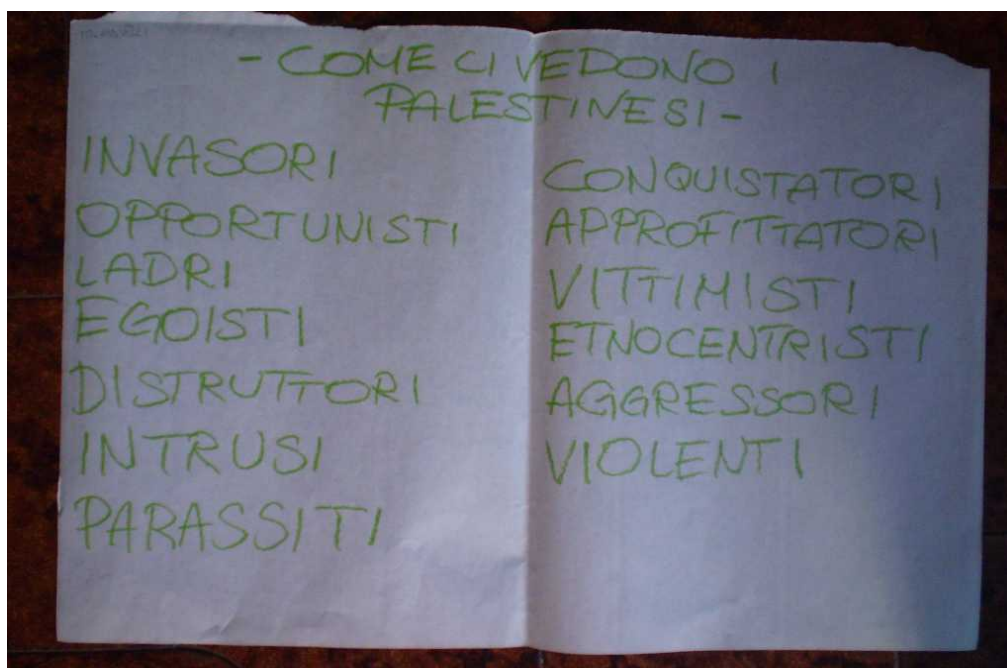 - COME CI VEDONO I
PALESTINESI -
INVASORI
OPPORTUNISTI
LADRI
EGOISTI
DISTRUTTORI
INTRUSI
PARASSITI
CONQUISTATORI
APPROFITTATORI
VITTIMISTI
ETNOCENTRISTI
AGGRESSORI
VIOLENTI